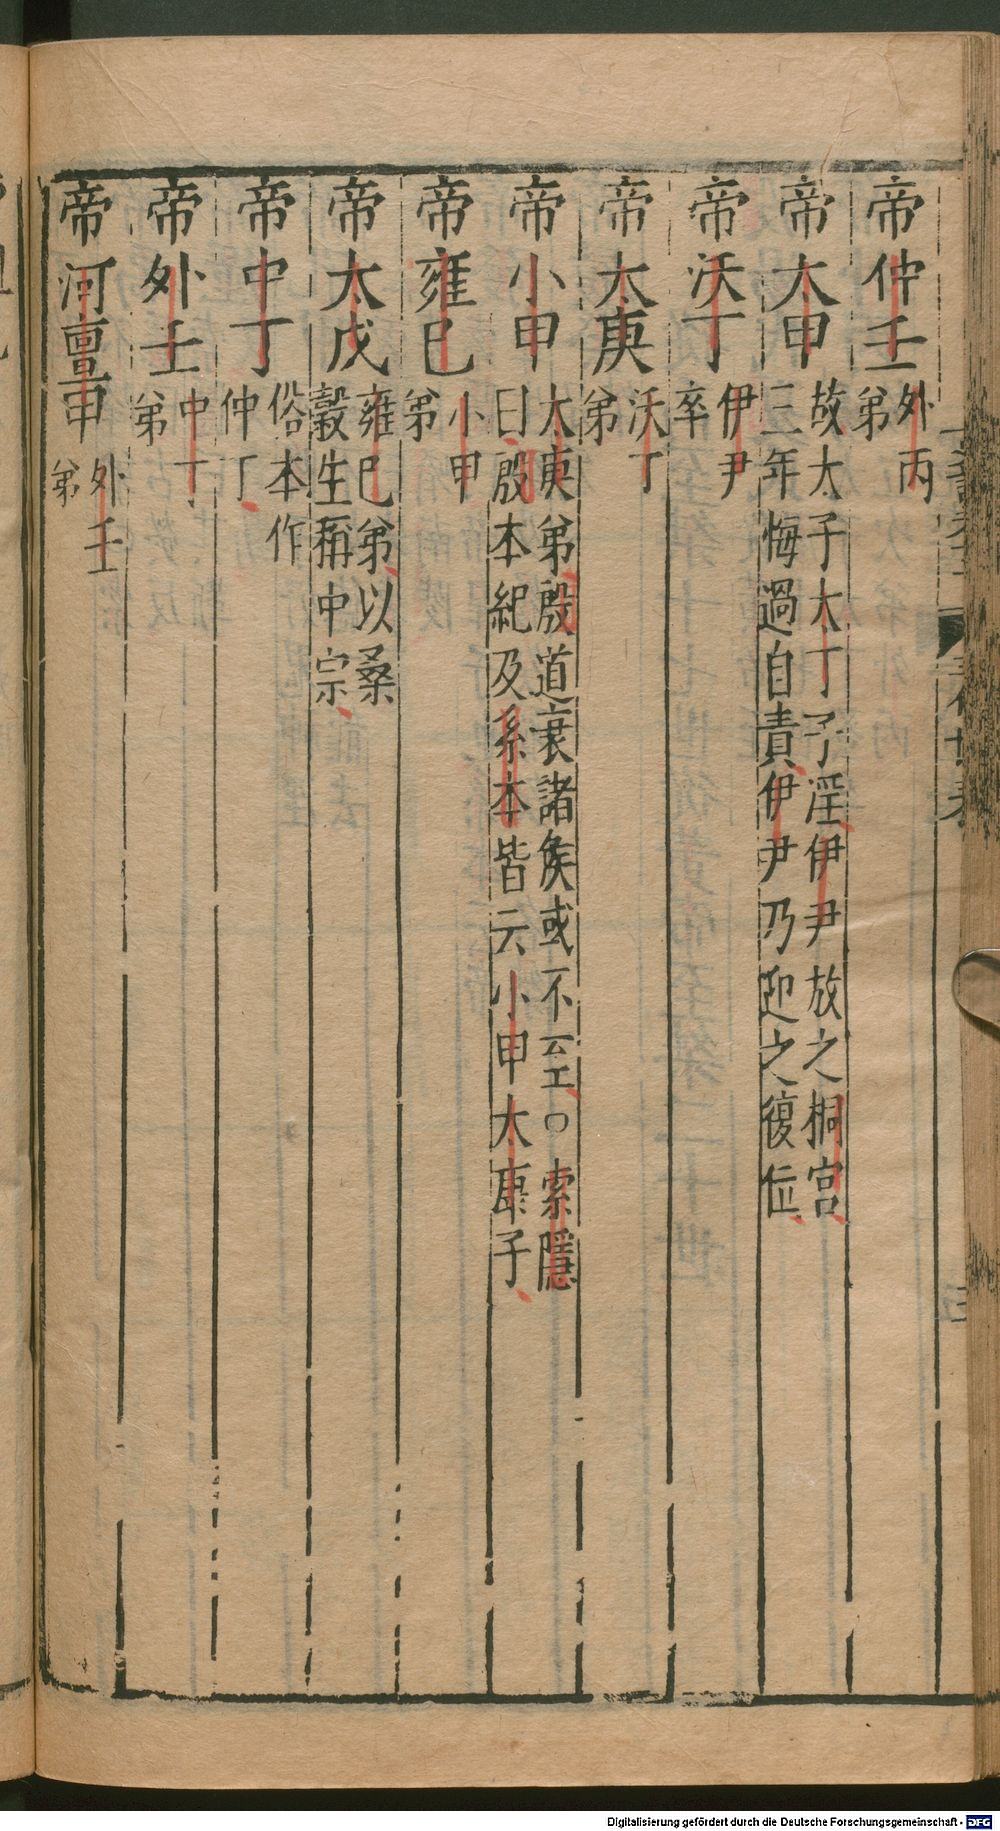 帝仲壬 外丙
弟
帝太甲 故太子太丁子淫伊尹放之桐宫
三年悔過自責伊尹乃迎之復位
帝沃丁 伊尹
卒
帝太庚 沃丁
弟
帝小甲 太庚弟殷道衰諸侯或不至○索隱
曰殷本紀及系本皆云小甲太康子
帝雍巳 小甲
弟
帝太戊 雍巳弟以桑
穀生稱中宗
帝中丁 俗本作
仲丁
帝外壬 中丁
弟
帝河亶甲 外壬
弟
Digitalisierung gefördert durch die Deutsche Forschungsgemeinschaft - DFG